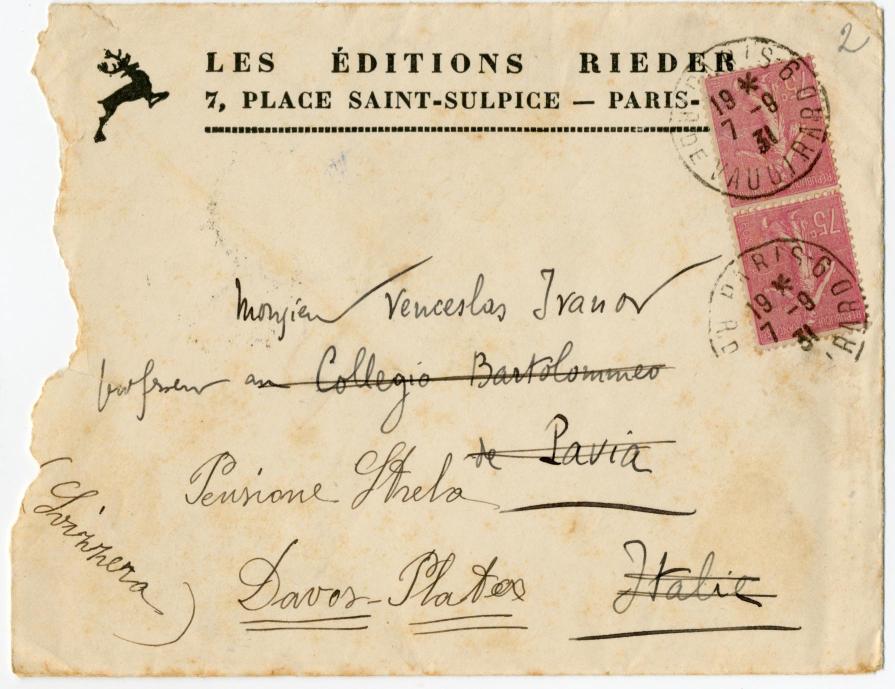 2
LES ÉDITIONS RIEDER
7, PLACE SAINT-SULPICE — PARIS-
PARIS-6
19 * 7 -9 31
R. DE VAUGIRARD
75c
75c
PARIS-6
19 * 7 -9 31
Monsieur Venceslas Ivanov
professeur au Collegio Bartolommeo
de Pavia
Pensione Strela
(Svizzera)
Davos-Platz
Italie